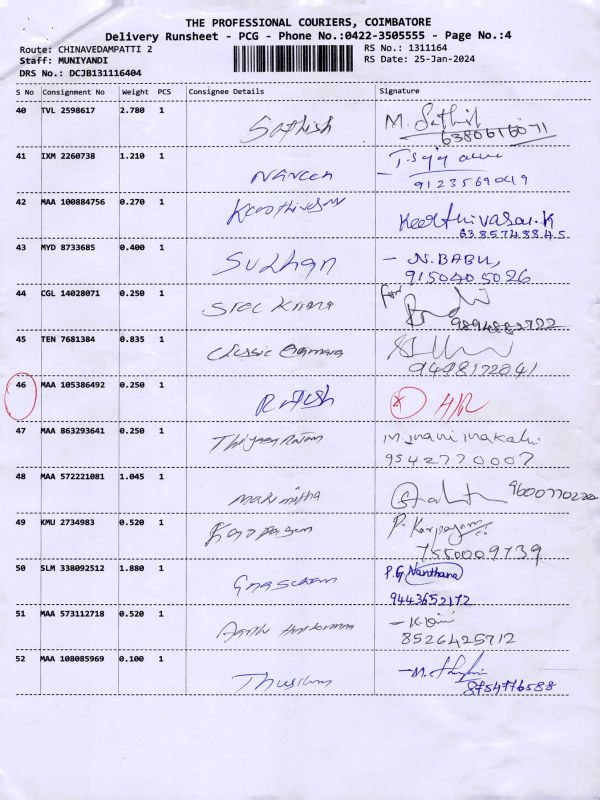 THE PROFESSIONAL COURIERS, COIMBATORE
Delivery Runsheet - PCG - Phone No.:0422-3505555 - Page No.:4
Route: CHINAVEDAMPATTI 2
RS No.: 1311164
Staff: MUNIYANDI
RS Date: 25-Jan-2024
DRS No.: DCJB131116404
S No Consignment No Weight PCS Consignee Details Signature
40 TVL 2598617 2.780 1 Sathish M. Sathish
6380616071
41 IXM 2260738 1.210 1 Naveen
9123569049
42 MAA 100884756 0.270 1 Keerthivasan Keerthivasan.K
6385748845
43 MYD 8733685 0.400 1 Sudhan N.BABU,
9150405026
44 CGL 14028071 0.250 1 Sree for
9894882722
45 TEN 7681384 0.835 1 Classic
9498172841
46 MAA 105386492 0.250 1 Ritish
47 MAA 863293641 0.250 1 M.
9542770007
48 MAA 572221081 1.045 1 9600770220
49 KMU 2734983 0.520 1 P. Karpagam
7550009739
50 SLM 338092512 1.880 1 P.G Nanthana
9443652172
51 MAA 573112718 0.520 1
8526425712
52 MAA 108085969 0.100 1 M.
8754776588